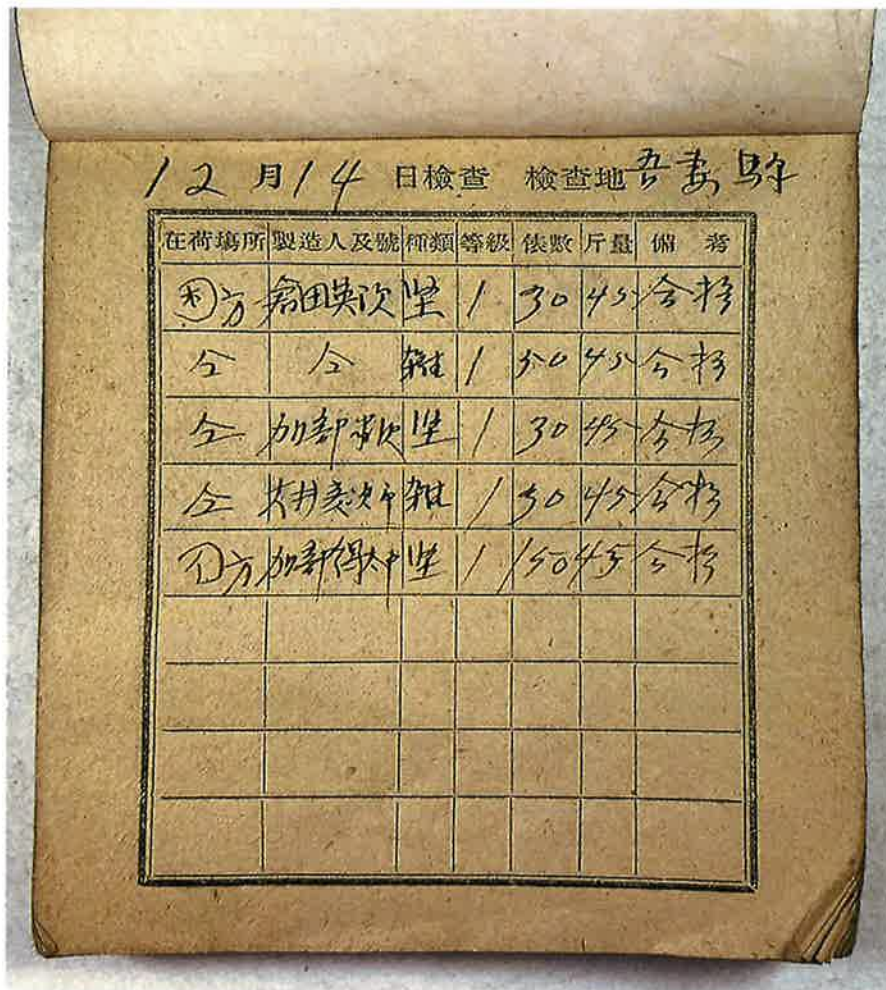 12月14日檢查 檢查地 吾妻駅
在荷塲所 製造人及號 種類 等級 俵數 斤量 備考
方 倉田英次 坚 1 30 45 合格
仝 仝 雑 1 50 45 合格
仝 加部 坚 1 30 45 合格
仝 井 雑 1 50 45 合格
方 加部 坚 1 150 45 合格